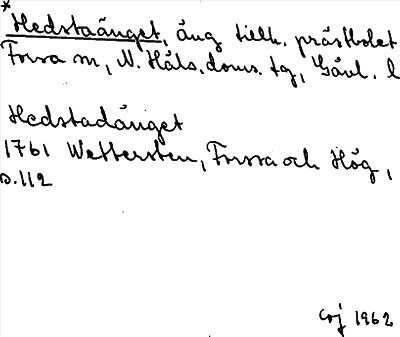 *
Hedstaänget, äng tillh. prästbolet
Forsa sn, N. Häls. doms. tg, Gävl. l
Hedstadänget
1761 Wettersten, Forssa och Hög,
s. 112
Coj 1962